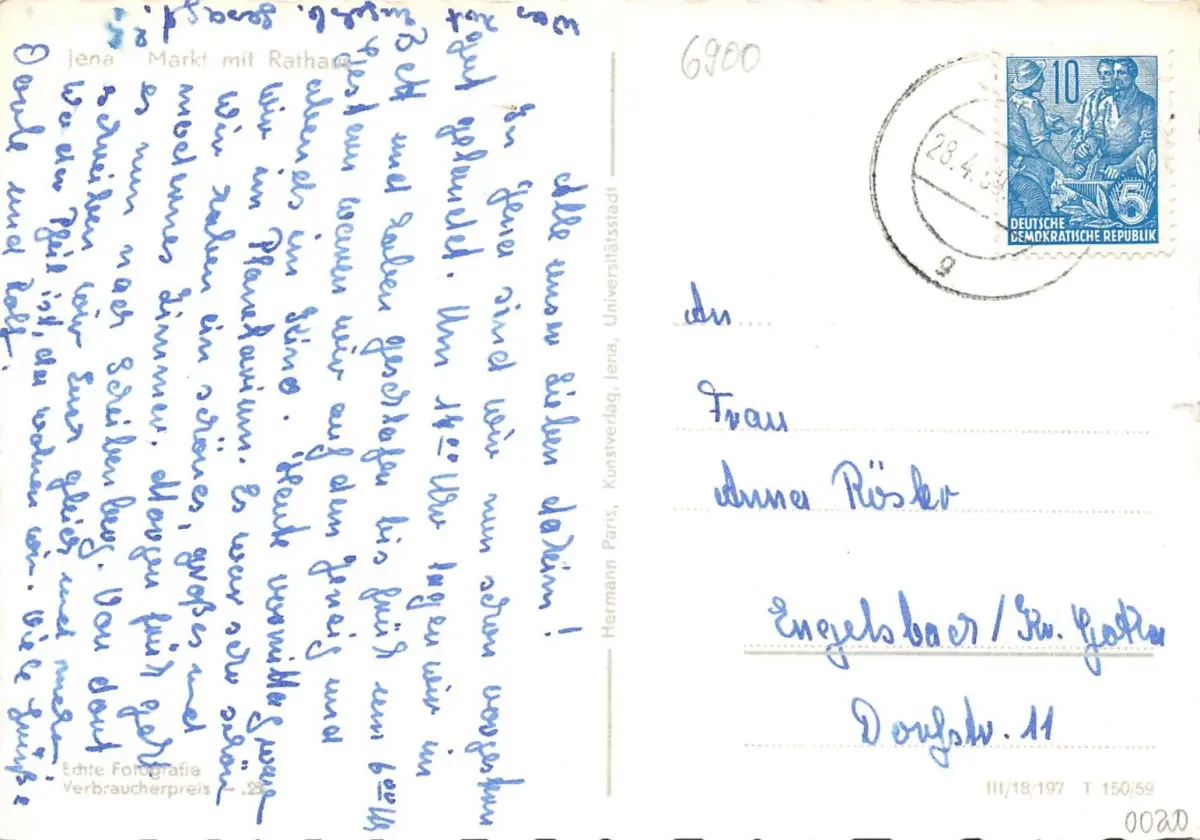 Jena Markt mit Rathaus
Alle unser Lieben daheim!
In Jena sind wir nun schon vorgestern
gut gelandet. Um 14 00 Uhr lagen wir im
Bett und haben geschlafen bis früh um 6 00 Uhr
Gestern waren wir auf dem und
abends im Kino. Heute vormittag waren
wir im Planetarium. Es war sehr schön
Wir haben ein schönes, großes und
modernes Zimmer. Morgen früh geht
es nun nach Scheibenberg. Von dort
schreiben wir Euch gleich mehr.
Wo der Pfeil ist, da wohnen wir. Viele Grüße
und Rolf.
Was hat gesagt?
Echte Fotografie
Verbraucherpreis
Hermann Paris, Kunstverlag, Jena, Universitätsstadt
6900
28.4.59
g
10
5
DEUTSCHE
DEMOKRATISCHE REPUBLIK
An
Frau
Anna Rösler
Engelsbach/Kr. Gotha
Dorfstr. 11
III/18/197 T 150/59
0020